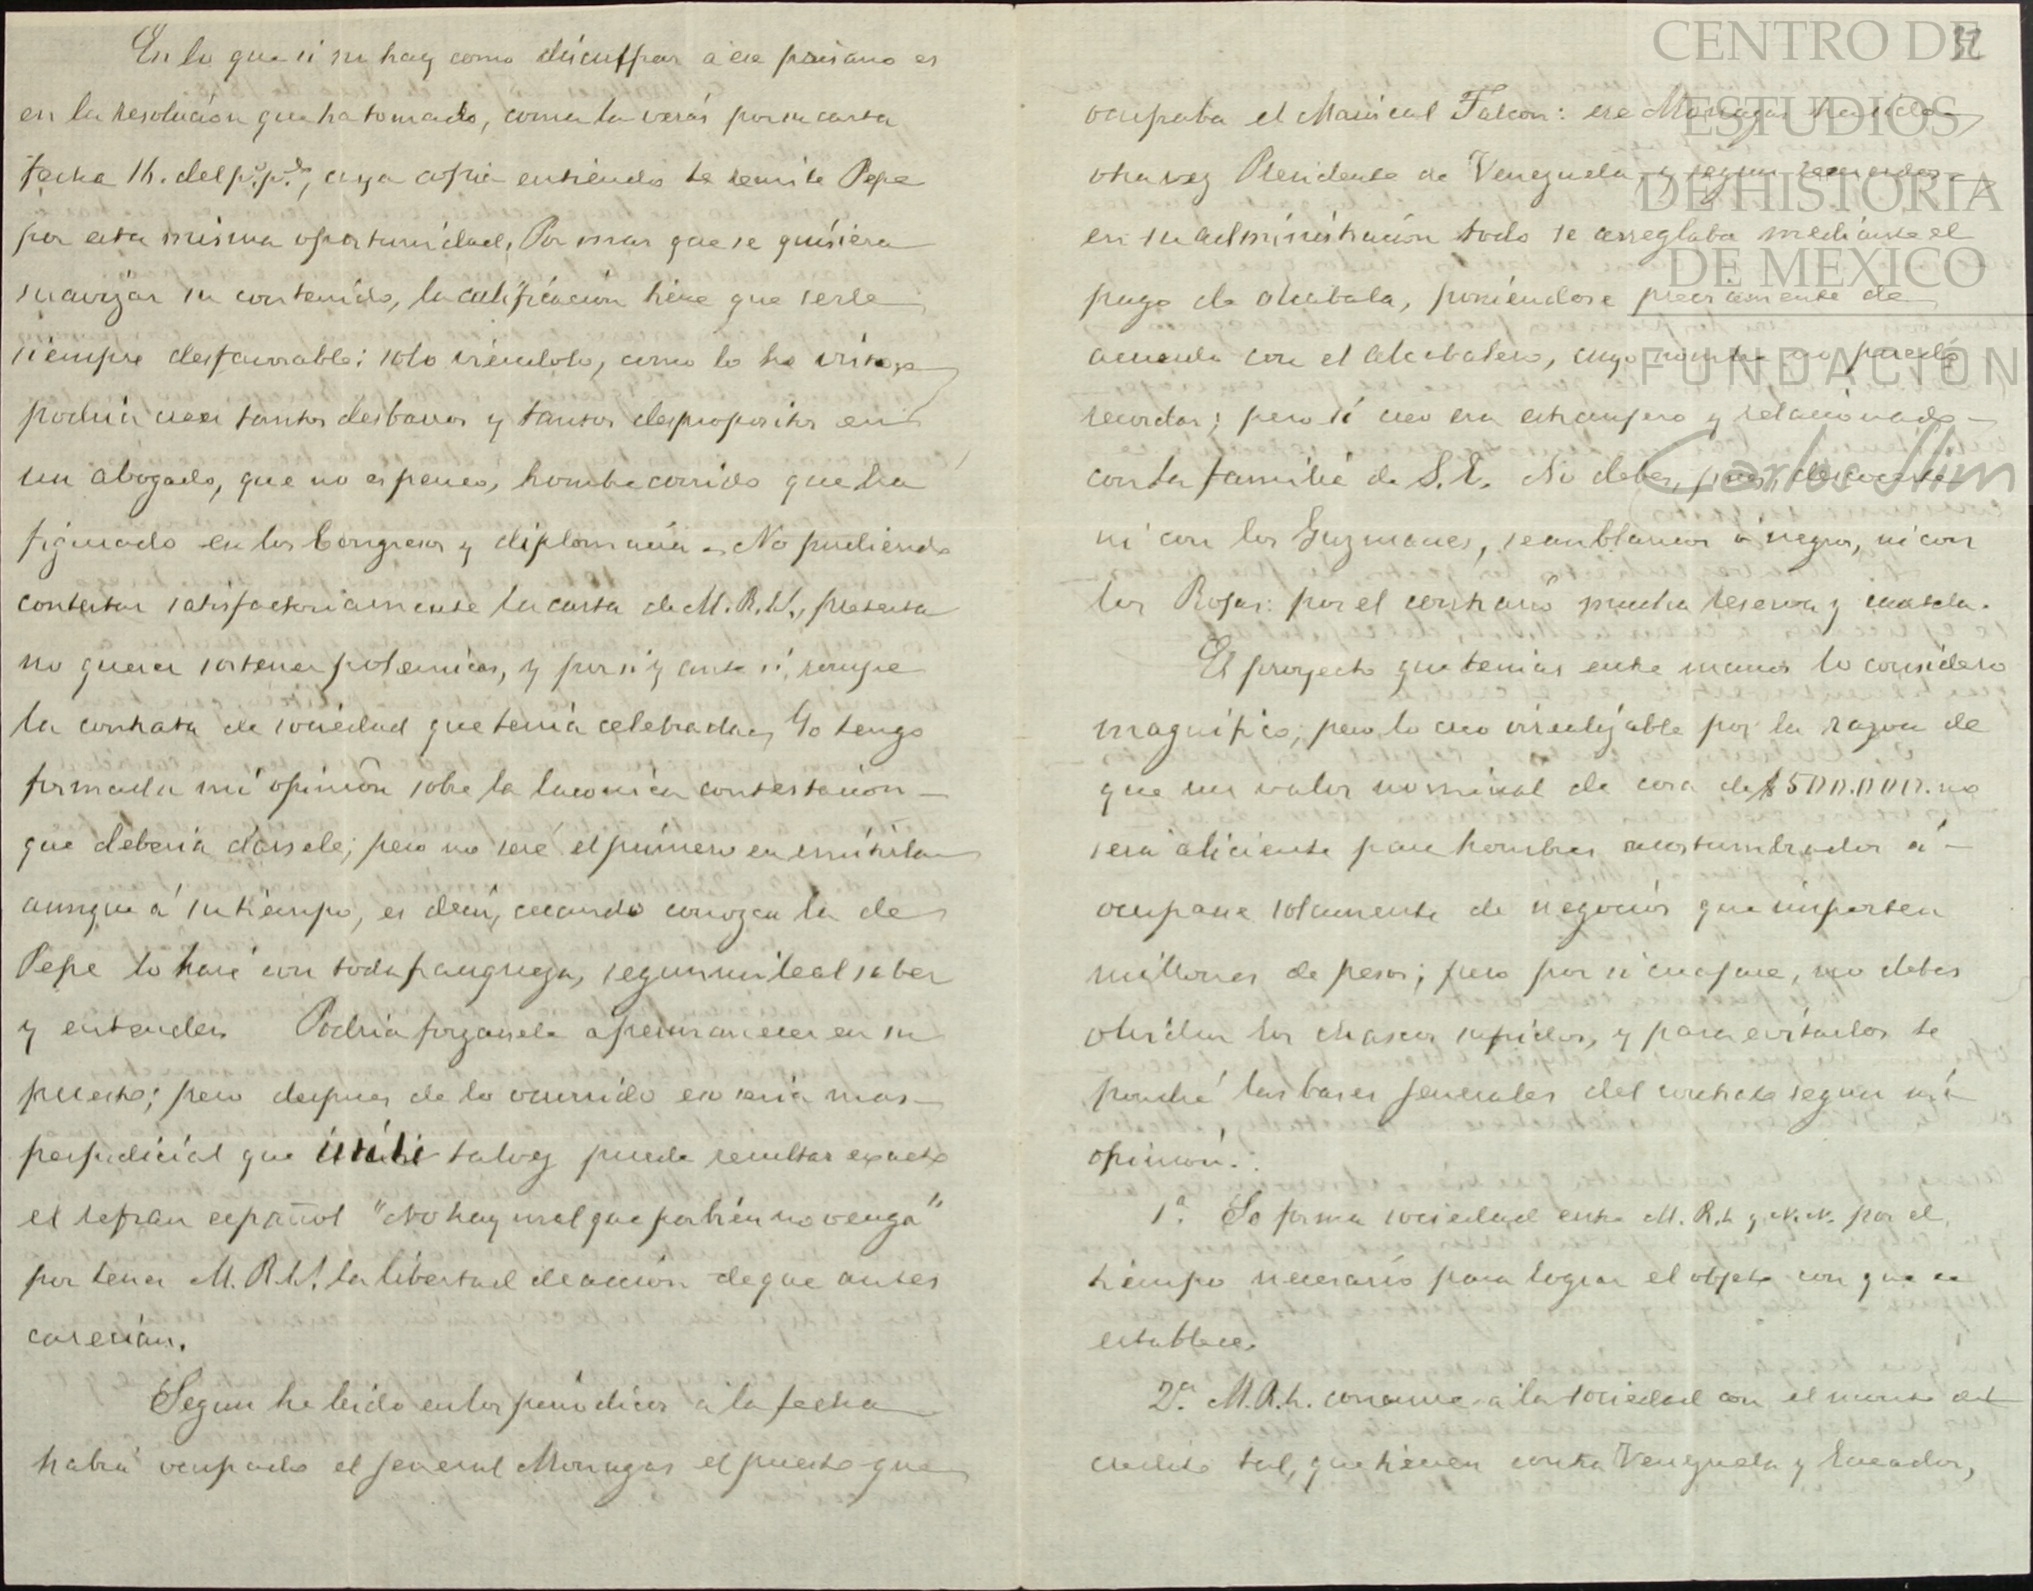 En lo que si no hay como disculpar a ese paisano es
en la resolución que ha tomado, como la verás por su carta
fecha 16. del p.º p.do, cuya copia entiendo te remite Pepe
por esta misma oportunidad. Por mas que se quisiera
suavizar su contenido, la calificación tiene que serle
siempre desfavorable: solo viéndolo, como lo he visto, se
podria creer tantos desbarros y tantos despropositos en
un abogado, que no es peneco, hombre corrido que ha
figurado en los Congresos y diplomacia. No pudiendo
contestar satisfactoriamente la carta de M. R. L., pretesta
no querer sostener polemicas, y por si y ante si, rompe
la contrata de sociedad que tenia celebrada. Yo tengo
formada mi opinión sobre la laconica contestacion
que deberia dársele; pero no seré el primero en emitirla
aunque á su tiempo, es decir, cuando conozca la de
Pepe lo haré con toda franqueza, segun mi leal saber
y entender. Podria forzarsele a permanecer en su
puesto; pero despues de lo ocurrido eso seria mas
perjudicial que útil: talvez puede resultar exacto
el refran español "No hay mal que por bien no venga"
por tener M. R. L. la libertad de acción de que antes
carecian.
Segun he leido en los periodicos a la fecha
habrá ocupado el General Monagas el puesto que
32
ocupaba el Mariscal Falcon: ese Monagas ha sido
otra vez Presidente de Venezuela, y segun recuerdo
en su administración todo se arreglaba mediante el
pago de alcabala, poniéndose previamente de
acuerdo con el alcabalero, cuyo nombre no puedo
recordar; pero sí creo era estranjero y relacionado
con la familia de S. E. No debes, pues, descocerte
ni con los Guzmanes, sean blancos ó negros, ni con
los Rojas: por el contrario mucha reserva y cautela.
El proyecto que tenias entre manos lo considero
magnifico; pero lo creo irrealizable por la razon de
que un valor nominal de cosa de $500.000. no
será aliciente para hombres acostumbrados á
ocuparse solamente de negocios que importen
millones de pesos; pero por si cuajare, no debes
olvidar los chascos sufridos, y para evitarlos te
pondré las bases generales del contrato segun mi
opinión.
1ª. Se forma sociedad entre M. R. L y N. N. por el
tiempo necesario para lograr el objeto con que se
establece.
2ª. M. R. L. concurre a la sociedad con el monto del
credito tal, que tienen contra Venezuela y Ecuador,
CENTRO DE
ESTUDIOS
DE HISTORIA
DE MEXICO
FUNDACIÓN
Carlos Slim